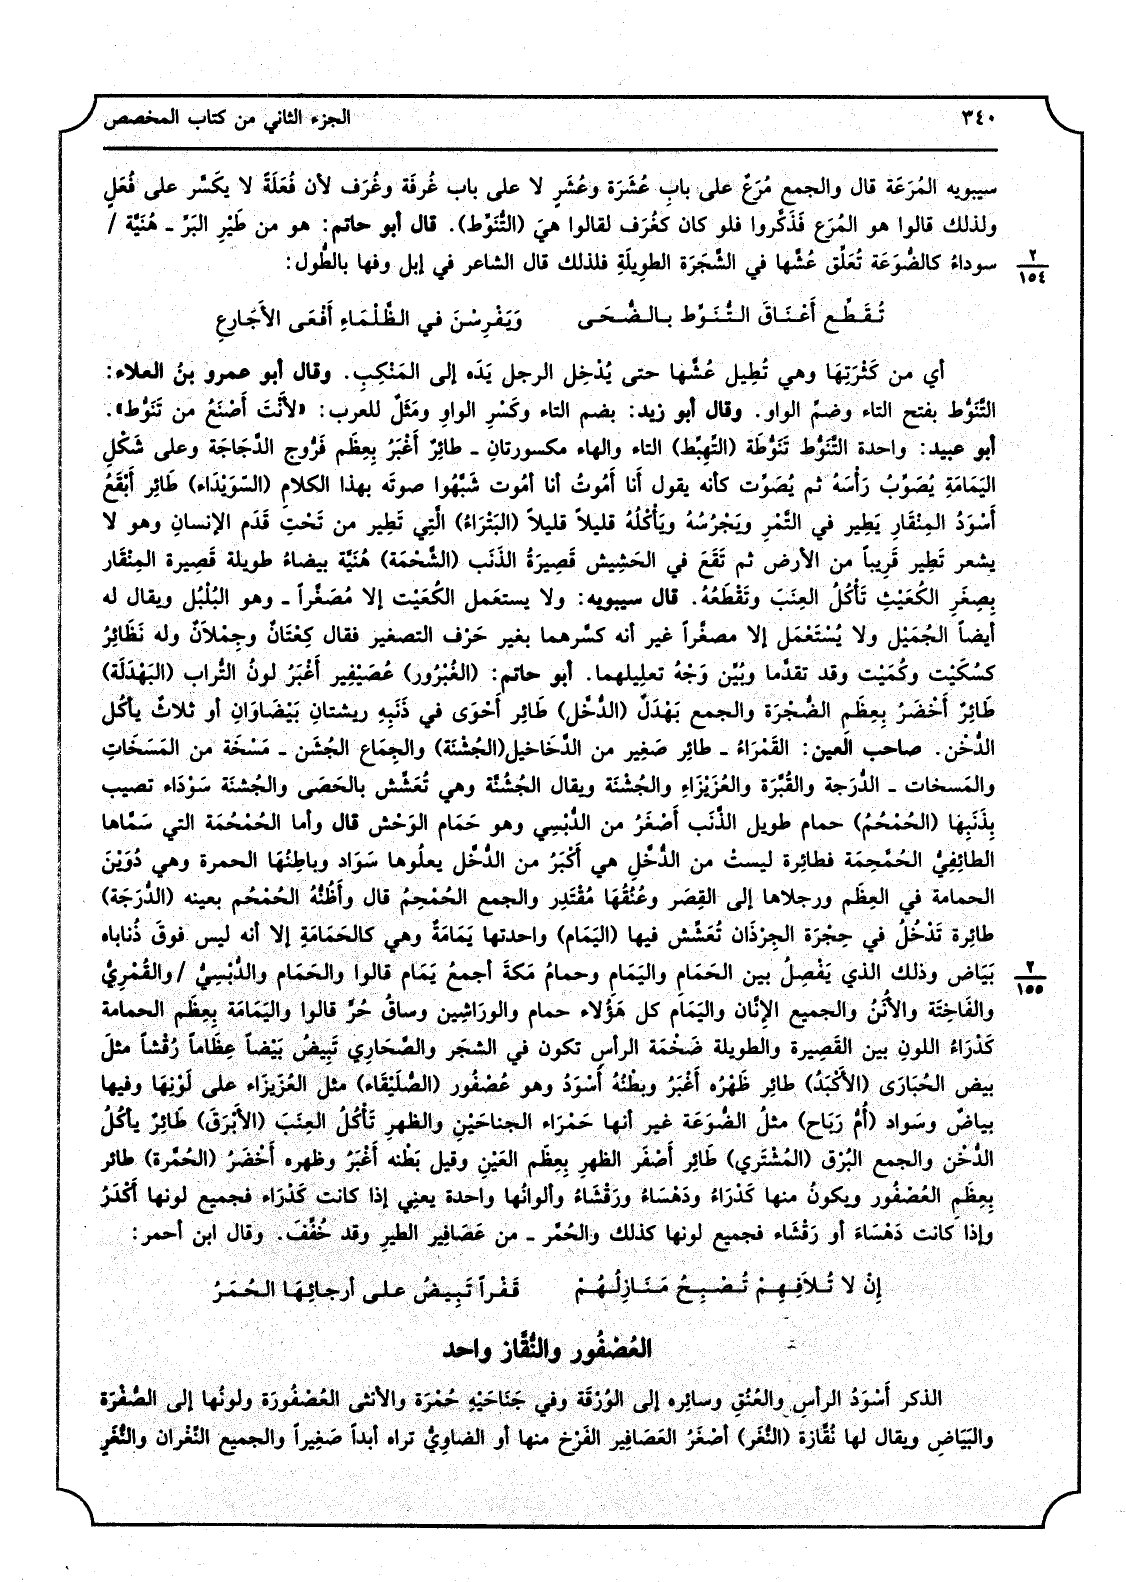 ٣٤٠ الجزء الثاني من كتاب المخصص
سيبويه المُرَعَة قال والجمع مُرَعٌ على بابِ عُشَرَة وعُشَرٍ لا على باب غُرفَة وغُرَف لأن فُعَلَةً لا يكَسَّر على فُعَلٍ
ولذلك قالوا هو المُرَع فَذَكَّروا فلو كان كغُرَف لقالوا هيَ (التُّنَوِّط). قال أبو حاتم: هو من طَيْرِ البَرِّ ـ هُنَيَّة /
٢
١٥٤
سوداءُ كالضُّوَعَة تُعَلِّق عُشَّها في الشَّجَرَة الطوِيلَةِ فلذلك قال الشاعر في إبل وفها بالطُّول:
تُقَطِّع أَعْنَاقَ التُّنَوِّط بالضُّحَى وَيَفْرِسْنَ في الظَّلْمَاءِ أَفْعَى الأجَارِعِ
أي من كَثْرَتِهَا وهي تُطِيل عُشَّها حتى يُدْخِل الرجل يَدَه إلى المَنْكِبِ. وقال أبو عمرو بنُ العلاء:
التَّنَوُّط بفتح التاء وضمِّ الواو. وقال أبو زيد: بضم التاء وكَسْرِ الواوِ ومَثَلٌ للعرب: «لأنْتَ أَصْنَعُ من تَنَوُّط».
أبو عبيد: واحدة التَّنَوُّط تَنَوُّطَة (التِّهِبِّط) التاء والهاء مكسورتانِ ـ طائِرٌ أَغْبَرُ بِعِظَم فَرُّوج الدَّجَاجَة وعلى شَكْلِ
اليَمَامَةِ يُصَوِّبُ رَأْسَهُ ثم يُصَوِّت كأنه يقول أَنا أَمُوتُ أنا أمُوت شَبَّهُوا صوتَه بهذا الكلامِ (السّوَيْدَاء) طَائِر أَبْقَعُ
أَسْوَدُ المِنْقَارِ يَطِير في التَّمْرِ ويَجْرُسُهُ ويَأْكُلُهُ قليلاً قليلاً (البَتْرَاءُ) الَّتِي تَطِير من تَحْتِ قَدَم الإنسانِ وهو لا
يشعر تَطِير قَرِيباً من الأرض ثم تَقَعَ في الحَشِيش قَصِيرَةُ الذَنَب (الشَّحْمَة) هُنَيَّة بيضاءُ طويلة قَصِيرة المِنْقَار
بِصِغَرِ الكُعَيْتِ تَأْكُلُ العِنَبَ وتَقْطَعُهُ. قال سيبويه: ولا يستعَمل الكُعَيْت إلا مُصَغَّراً ـ وهو البُلْبُل ويقال له
أيضاً الجُمَيْل ولا يُسْتَعْمَل إلا مصغَّراً غير أنه كسَّرهما بغير حَرْف التصغير فقال كِعْتَانٌ وجِمْلاَنٌ وله نَظَائِرُ
كسُكَيْت وكُمَيْت وقد تقدَّما وبُيِّن وَجْهُ تعلِيلهما. أبو حاتم: (الغُبْرُور) عُصَيْفِير أَغْبَرُ لونُ التُّراب (البَهْدَلَة)
طَائِرٌ أَخْضَرُ بِعِظَمِ الصُّجْرَة والجمع بَهْدَلٌ (الدُّخَّل) طَائِر أَحْوَى في ذَنَبِهِ ريشتانِ بَيْضَاوَانِ أو ثلاثٌ يأكُل
الدُّخْن. صاحب العين: القَمْرَاءُ ـ طائِر صَغِير من الدَّخَاخيل(الجُشْنَة) والجِمَاع الجُشَن ـ مَسْخَة من المَسَخَاتِ
والمَسخات ـ الدُّرَجة والقُبَّرَة والعُزَيْزَاءِ والجُشْنَة ويقال الجُشُنَّة وهي تُعَشَّش بالحَصَى والجُشنَة سَوْدَاء تصيب
بِذَنَبِهَا (الحُمْحُمُ) حمام طويل الذَّنَب أَصْغَرُ من الدُّبْسِي وهو حَمَام الوَحْش قال وأما الحُمْحُمَة التي سَمَّاها
الطائِفِيُّ الحُمَّحِمَة فطائِرة ليستْ من الدُّخَّلِ هي أَكْبَرُ من الدُّخَّل يعلُوها سَوَاد وباطِنُهَا الحمرة وهي دُوَيْنَ
الحمامة في العِظَم ورجلاها إلى القِصَر وعُنُقُهَا مُقْتَدِر والجمع الحُمْحِمُ قال وأَظُنُّهُ الحُمْحُم بعينه (الدُّرَجَة)
طائِرة تَدْخُلُ في جِحْرَة الجِرْذَان تُعَشَّش فيها (اليَمَام) واحدتها يَمَامَةٌ وهي كالحَمَامَةِ إلا أنه ليس فوقَ ذُناباه
بَيَاض وذلك الذي يَفْصِلُ بين الحَمَامِ واليَمَام وحمامُ مَكةَ أجمعُ يَمَام قالوا والحَمَام والدُّبْسِيُّ /والقُمْرِيُّ
٢
١٥٥
والفَاخِتَة والأُنَنُ والجميع الإِنَّان واليَمَام كل هَؤُلاء حمام والورَاشِين وساقُ حُرٍّ قالوا واليَمَامَة بِعِظَم الحمامة
كَدْرَاءُ اللونِ بين القَصِيرة والطويلة ضَخْمَة الرأسِ تكون في الشجَر والصَّحَارِي تَبِيضُ بَيْضاً عِظَاماً رُقْشاً مثلَ
بيض الحُبَارَى (الأَكْبَدُ) طائِر ظَهْرُه أَغْبَرُ وبطْنُهُ أَسْوَدُ وهو عُصْفُور (الصُّلَيْقَاء) مثل العُزَيزَاء على لَوْنِهَا وفيها
بياضٌ وسَواد (أُمُّ رَبَاح) مثلُ الضُّوَعَة غير أنها حَمْرَاء الجناحَيْنِ والظهرِ تَأْكُلُ العِنَبَ (الأَبْرَقَ) طَائِرٌ يأكُلُ
الدُّخْن والجمع البُرْق (المُشْتَرِي) طَائِر أَصْفَر الظهرِ بِعِظَم العَيْنِ وقيل بَطْنه أَغْبَرُ وظهره أَخْضَرُ (الحُمَّرة) طائر
بِعِظَمِ العُصْفُور ويكونُ منها كَدْرَاءُ ودَهْسَاءُ ورَقْشَاءُ وألوانُها واحدة يعنِي إذا كانت كَدْرَاء فجميع لونها أَكْدَرُ
وإذا كانت دَهْسَاءَ أو رَقْشَاء فجميع لونها كذلك والحُمَّر ـ من عَصَافِير الطيرِ وقد خُفِّفَ. وقال ابن أحمر:
إِنْ لا تُلاَفِهِمْ تُصْبِحُ مَنَازِلُهُمْ قَفْراً تَبِيضُ على أرجائِهَا الحُمَرُ
العُصْفُور والنُّقَّاز واحد
الذكر أَسْوَدُ الرأسِ والعُنُقِ وسائِره إلى الوُرْقَة وفي جَنَاحَيْهِ حُمْرَة والأنثى العُصْفُورَة ولونُها إلى الصُّفْرَة
والبَيَاضِ ويقال لها نُقَّازة (النُّغَر) أصْغَرُ العَصَافِير الفَرْخ منها أو الضاوِيُّ تراه أبداً صَغِيراً والجميع النِّغْران والنُّغَر